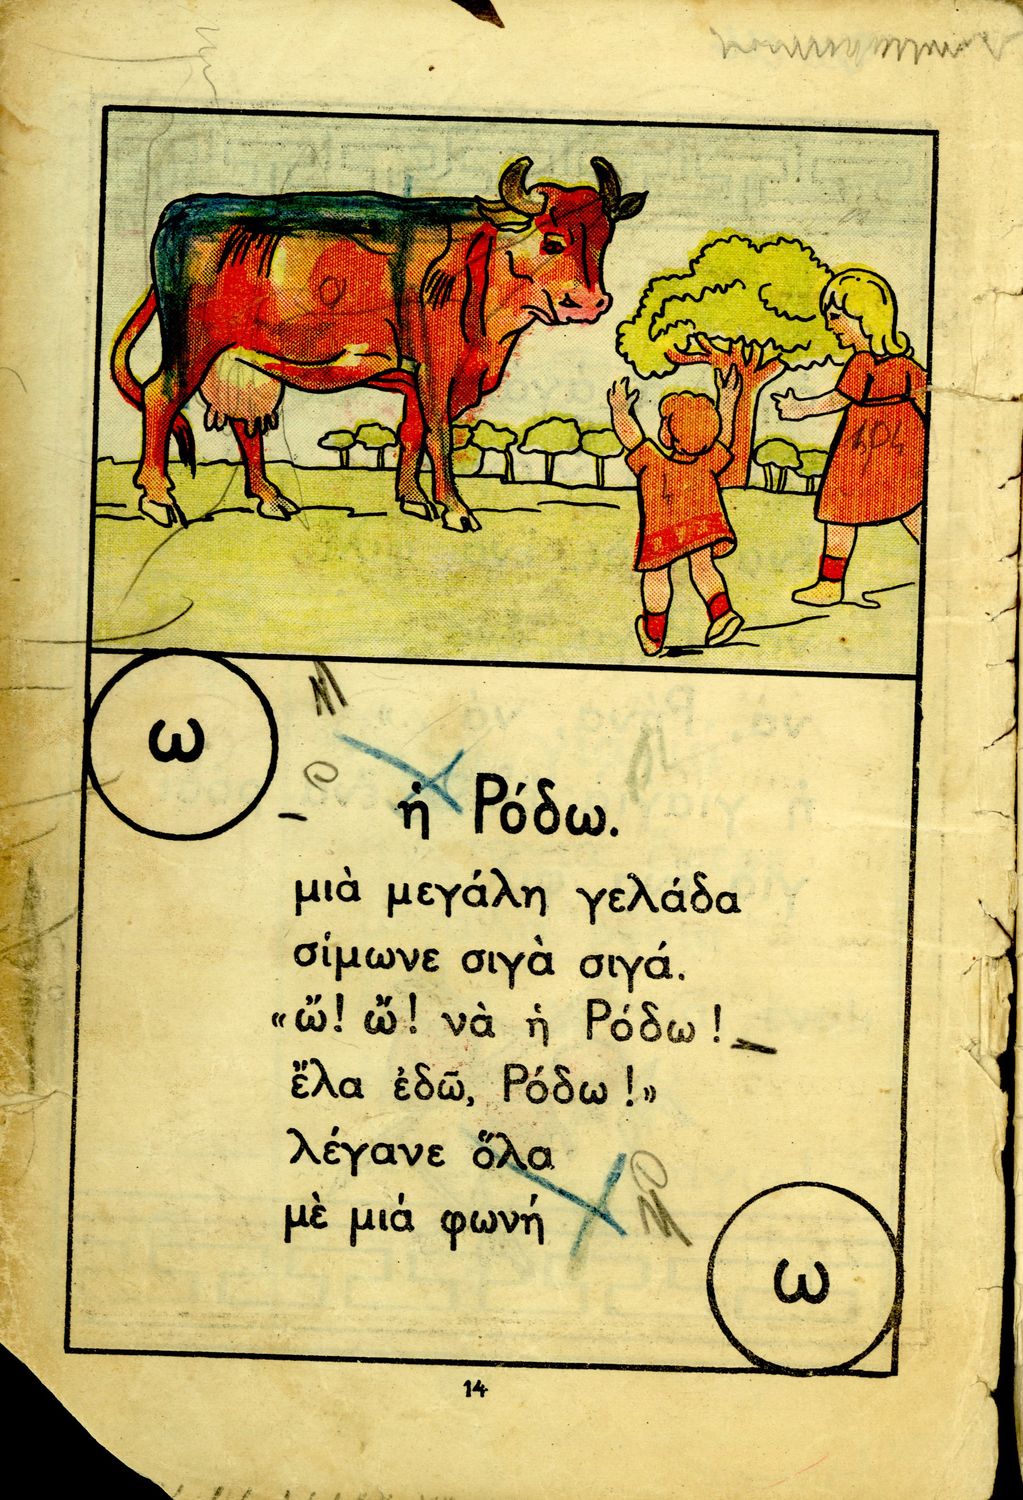 ω
ἡ Ρόδω.
μιὰ μεγάλη γελάδα
σίμωνε σιγὰ σιγά.
«ὤ! ὤ! νὰ ἡ Ρόδω!
ἔλα ἐδῶ, Ρόδω!»
λέγανε ὅλα
μὲ μιά φωνή
ω
14